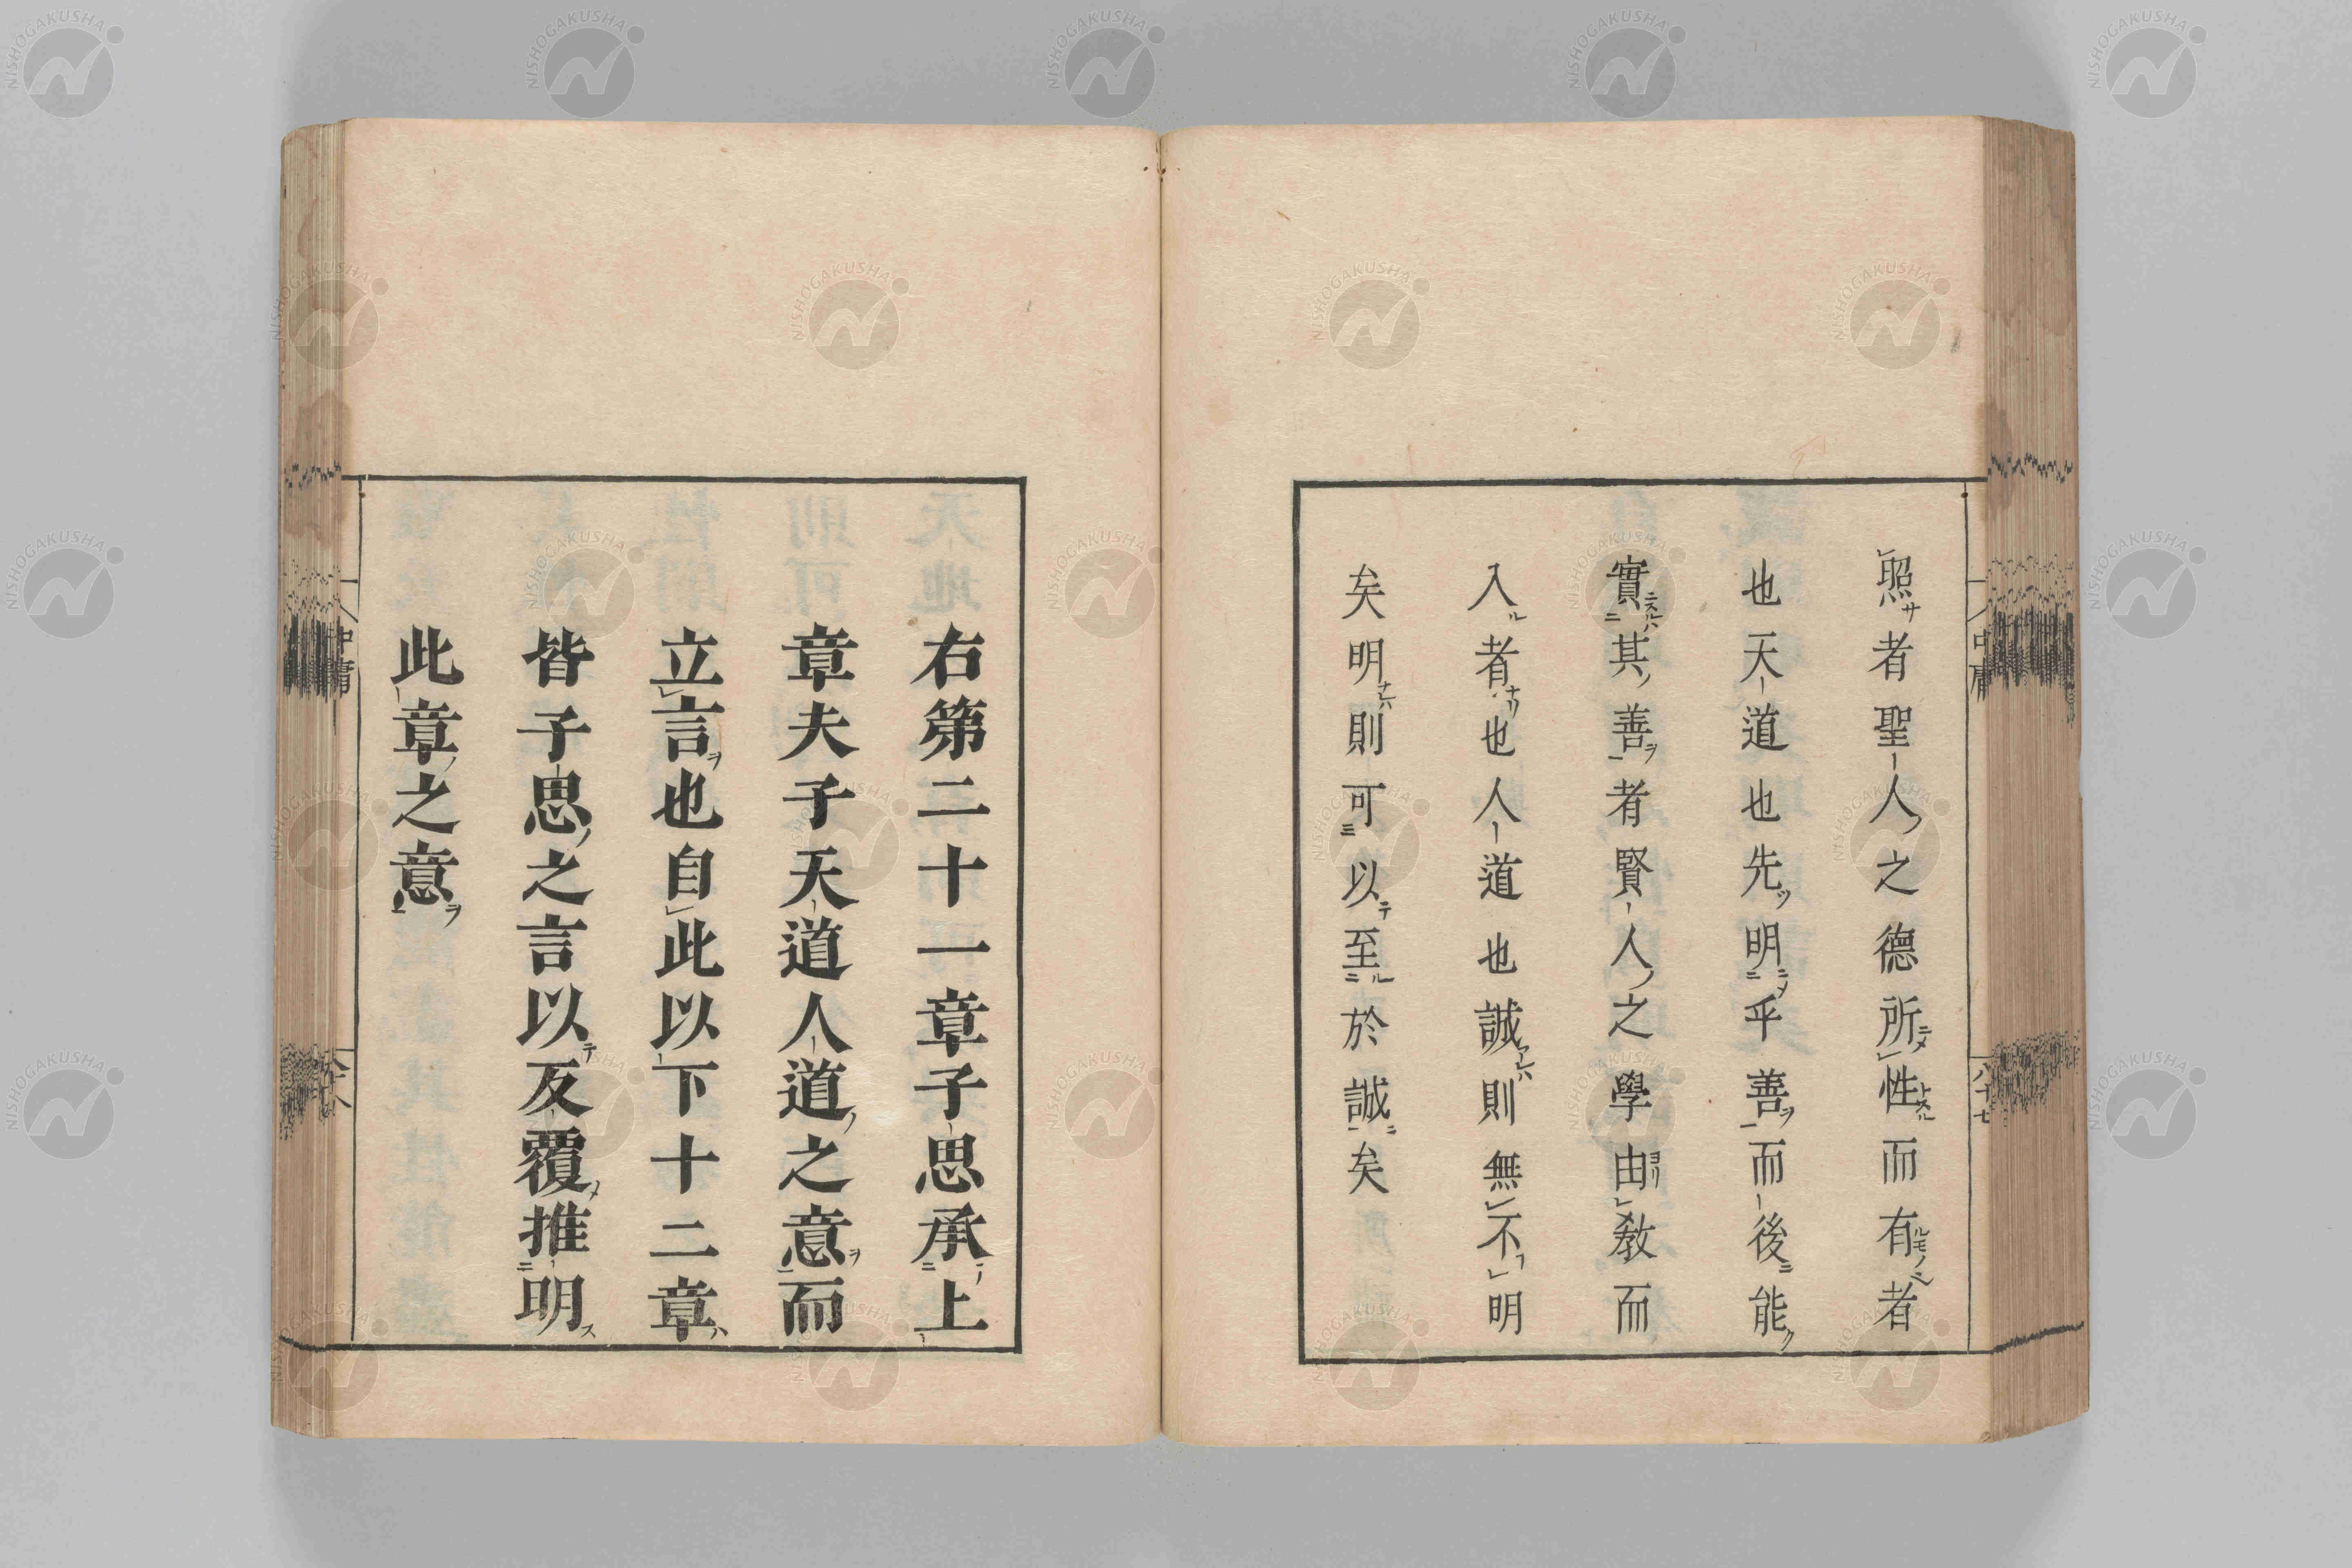 照者聖人之德所性而有者
也天道也先明乎善而後能
實其善者賢人之學由敎而
入者也人道也誠則無不明
矣明則可以至於誠矣
中庸
八十七
右第二十一章子思承上
章夫子天道人道之意而
立言也自此以下十二章
皆子思之言以反覆推明
此章之意
中庸
NISHOGAKUSHA